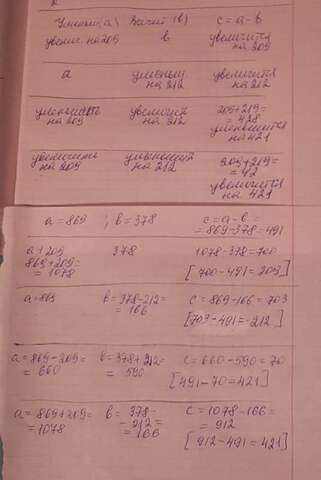 Уменьш(а) Вычит (в) c = a - в
увелич. на 209 в увеличится на 209
a уменьш на 212 увеличится на 212
уменьшить на 209 увеличит на 212 209+212=
= 428
уменьшится на 421
увеличить на 209 уменьшит на 212 209+212=
= 42
увеличится на 421
a = 869 ; в = 378 c = a - в =
= 869 - 378 = 491
a + 209 378 1078 - 378 = 700
869 + 209 =
= 1078 [700 - 491 = 209]
a = 869 в = 378 - 212 = c = 869 - 166 = 703
= 166 [703 - 491 = 212]
a = 869 - 209 = в = 378 + 212 = c = 660 - 590 = 70
= 660 = 590 [491 - 70 = 421]
a = 869 + 209 = в = 378 - c = 1078 - 166 =
= 1078 - 212 = = 912
= 166 [912 - 491 = 421]